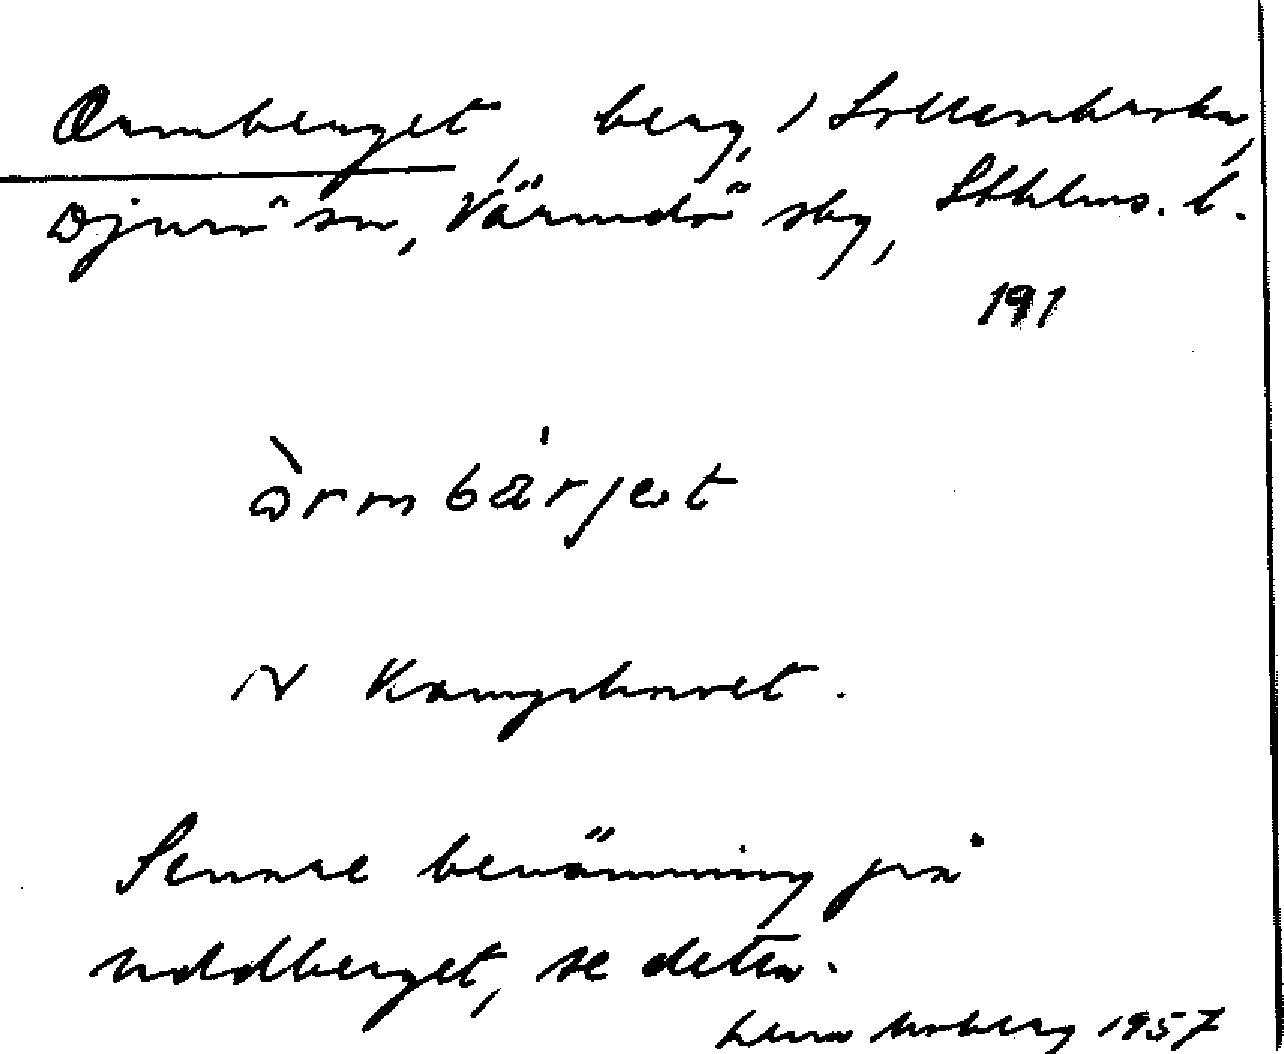 Ormberget, berg, i Sollenkroka,
Djurö sn, Värmdö skg, Sthlms. l.
191
òrmbär'jet
N Kamshavet.
Senare benämning på
Uddberget, se detta.
Lena Moberg 1957